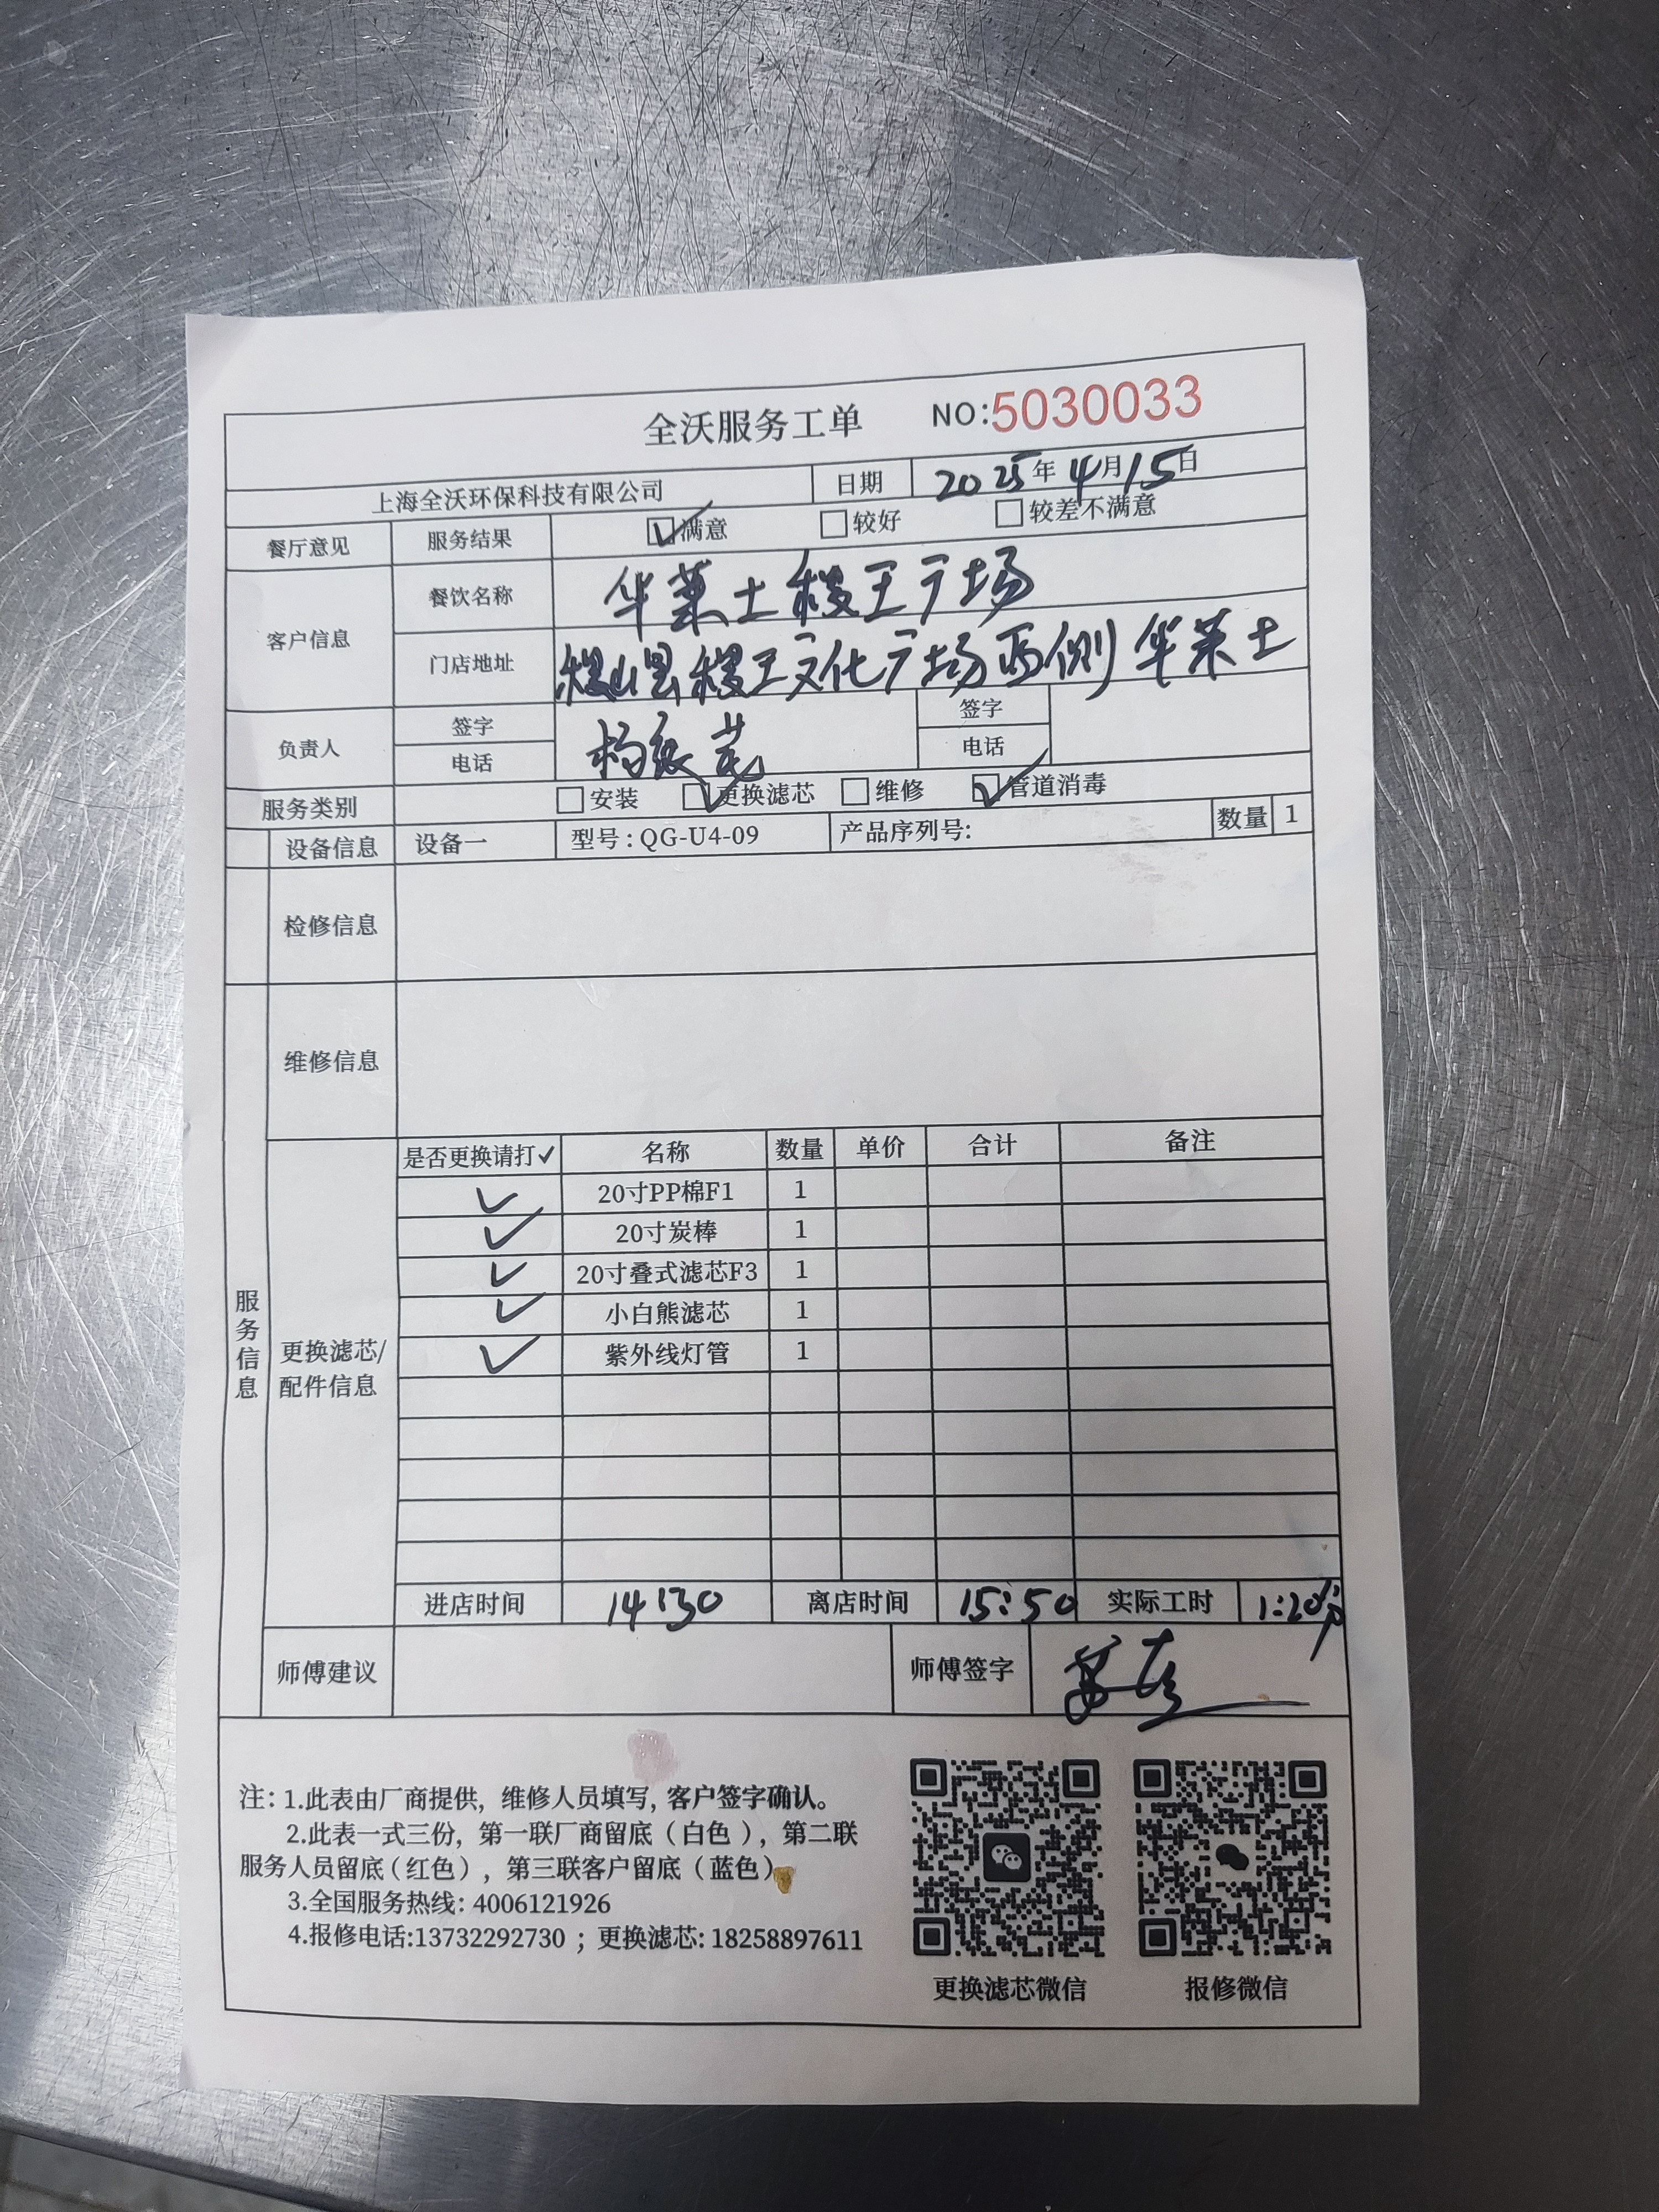 全沃服务工单 NO:5030033
上海全沃环保科技有限公司 日期 2025年4月15日
餐厅意见 服务结果 满意 较好 较差不满意
客户信息 餐饮名称 华莱士稷王广场
门店地址 稷山县稷王文化广场西侧华莱士
负责人 签字 签字
电话 电话
服务类别 安装 更换滤芯 维修 管道消毒
设备信息 设备一 型号:QG-U4-09 产品序列号: 数量 1
检修信息
维修信息
服务信息
更换滤芯/
配件信息
是否更换请打✓ 名称 数量 单价 合计 备注
✓ 20寸PP棉F1 1
✓ 20寸炭棒 1
✓ 20寸叠式滤芯F3 1
✓ 小白熊滤芯 1
✓ 紫外线灯管 1
进店时间 14:30 离店时间 15:50 实际工时 1:20分
师傅建议 师傅签字
注: 1.此表由厂商提供, 维修人员填写, 客户签字确认。
2.此表一式三份, 第一联厂商留底(白色), 第二联
服务人员留底(红色), 第三联客户留底(蓝色)
3.全国服务热线: 4006121926
4.报修电话:13732292730 ; 更换滤芯: 18258897611
更换滤芯微信 报修微信